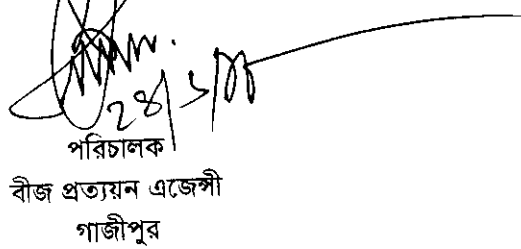 পরিচালক
বীজ প্রত্যয়ন এজেন্সী
গাজীপুর